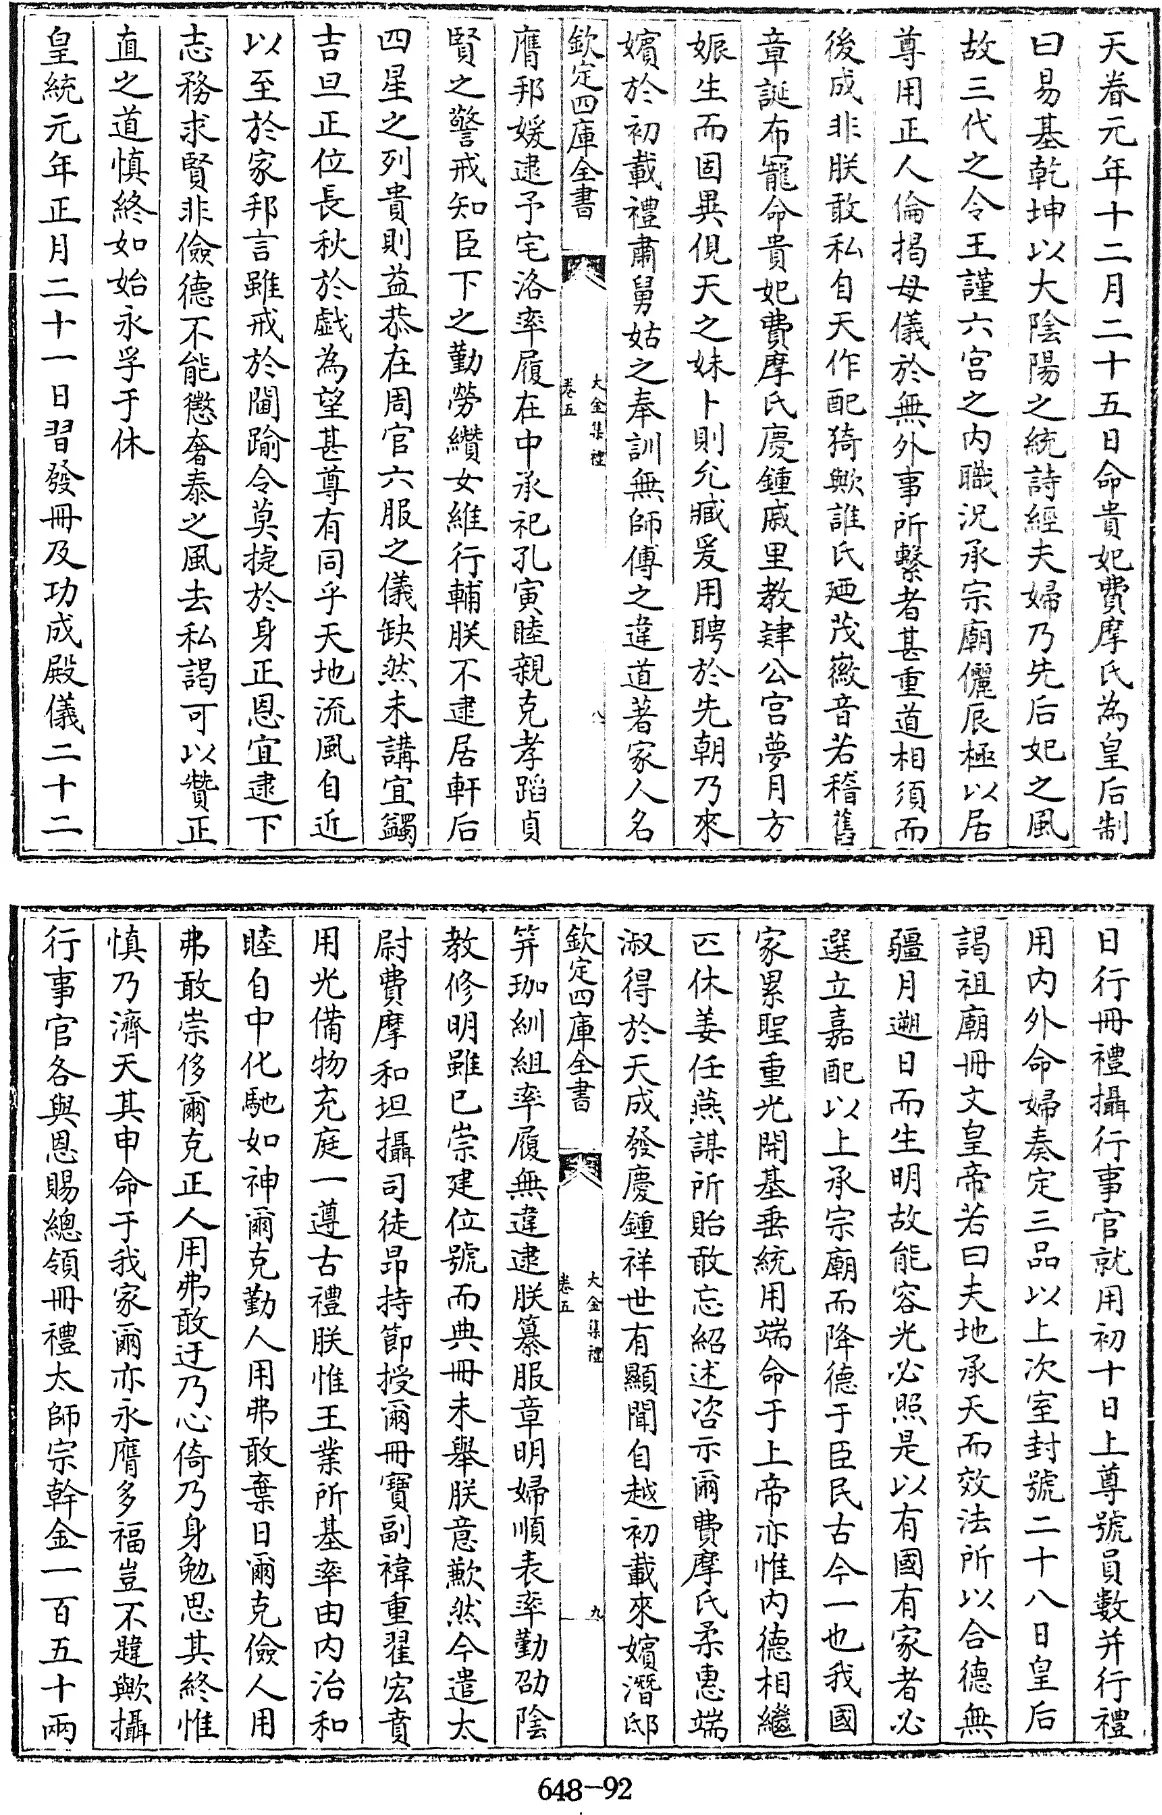 天眷元年十二月二十五日命貴妃費摩氏為皇后制
曰易基乾坤以大陰陽之統詩經夫婦乃先后妃之風
故三代之令王謹六宮之內職況承宗廟儷宸極以居
尊用正人倫揭母儀於無外事所繫者甚重道相須而
後成非朕敢私自天作配猗歟誰氏廼茂嶶音若稽舊
章誕布寵命貴妃費摩氏慶鍾戚里教肄公宮夢月方
娠生而固異俔天之妹卜則允臧爰用聘於先朝乃來
嬪於初載禮肅舅姑之奉訓無師傅之違道著家人名
欽定四庫全書
大金集禮
卷五
八
膺邦媛逮予宅洛率履在中承祀孔寅睦親克孝蹈貞
賢之警戒知臣下之勤勞纘女維行輔朕不逮居軒后
四星之列貴則益恭在周官六服之儀缺然未講宜蠲
吉旦正位長秋於戲為望甚尊有同乎天地流風自近
以至於家邦言雖戒於閫踰令莫捷於身正恩宜逮下
志務求賢非儉德不能懲奢泰之風去私謁可以贊正
直之道慎終如始永孚于休
皇統元年正月二十一日習發冊及功成殿儀二十二
日行冊禮攝行事官就用初十日上尊號員數并行禮
用內外命婦奏定三品以上次室封號二十八日皇后
謁祖廟冊文皇帝若曰夫地承天而效法所以合德無
疆月遡日而生明故能容光必照是以有國有家者必
選立嘉配以上承宗廟而降德于臣民古今一也我國
家累聖重光開基垂統用端命于上帝亦惟內德相繼
匹休姜任燕謀所貽敢忘紹述咨示爾費摩氏柔惠端
淑得於天成發慶鍾祥世有顯聞自越初載來嬪潛邸
欽定四庫全書
大金集禮
卷五
九
笄珈紃組率履無違逮朕纂服章明婦順表率勤劭陰
教修明雖已崇建位號而典冊未舉朕意歉然今遣太
尉費摩和坦攝司徒昂持節授爾冊寶副褘重翟宏賁
用光備物充庭一遵古禮朕惟王業所基率由內治和
睦自中化馳如神爾克勤人用弗敢棄日爾克儉人用
弗敢崇侈爾克正人用弗敢迂乃心倚乃身勉思其終惟
慎乃濟天其申命于我家爾亦永膺多福豈不韙歟攝
行事官各與恩賜總領冊禮太師宗幹金一百五十兩
648-92